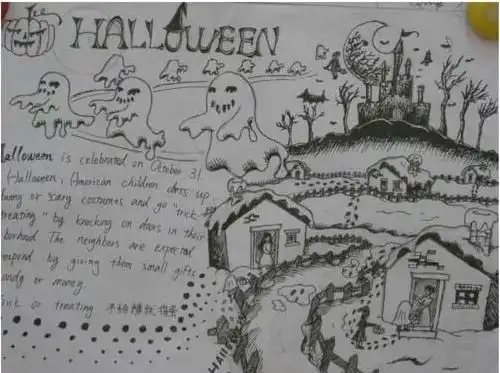 HALLOWEEN
Halloween is celebrated on October 31.
Halloween, American children dress up
funny or scary costumes and go "trick
treating" by knocking on doors in their
borhood. The neighbors are expected
respond by giving them small gifts
andy or money.
or treating 不怕糟就